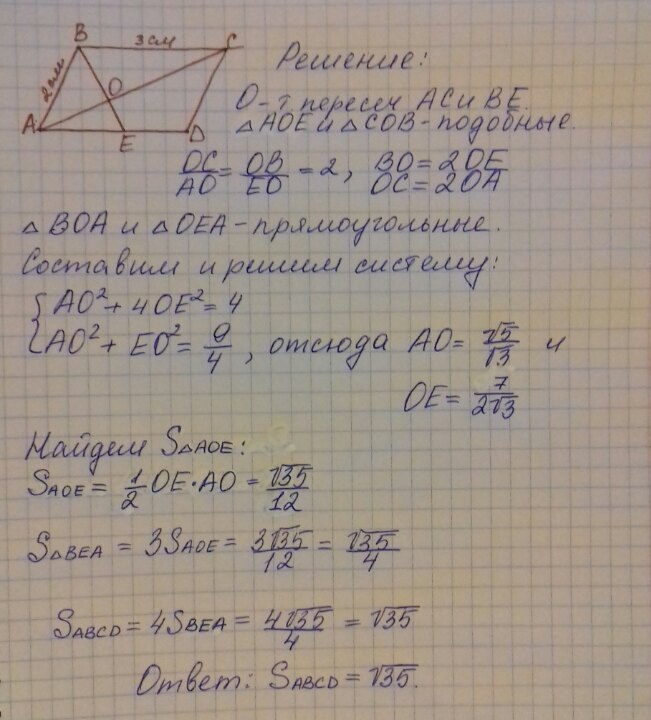 B 3 см C
2 см
O
A E D
Решение:
O - т. пересеч AC и BE.
△AOE и △COB - подобные.
OC/AO = OB/EO = 2, BO = 2OE
OC = 2OA
△BOA и △OEA - прямоугольные.
Составим и решим систему:
{ AO² + 4OE² = 4
AO² + EO² = 9/4, отсюда AO = √5/√3 и
OE = 7/2√3
Найдем S△AOE:
SAOE = 1/2 OE·AO = √35/12
S△BEA = 3SAOE = 3√35/12 = √35/4
SABCD = 4SBEA = 4√35/4 = √35
Ответ: SABCD = √35.